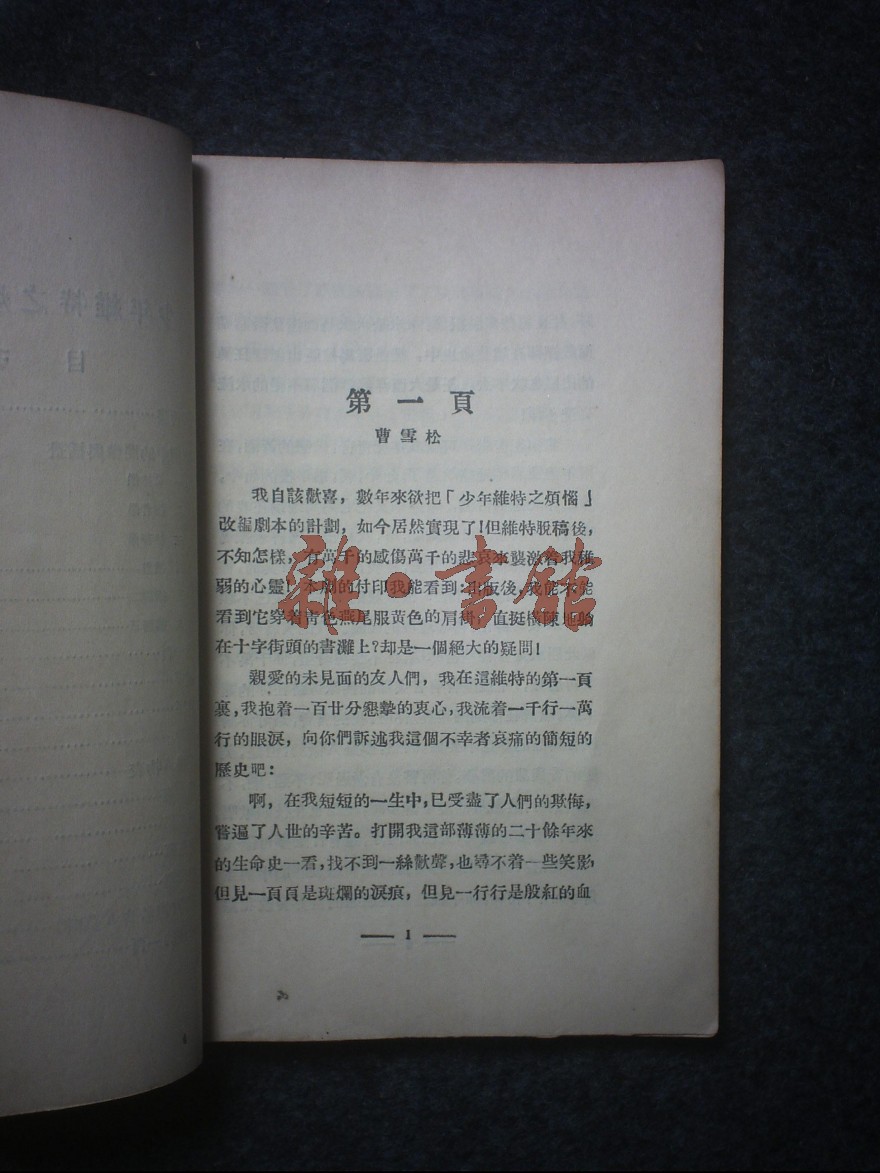 第一頁
曹雪松
我自該歡喜,數年來欲把「少年維特之煩惱」
改編劇本的計劃,如今居然實現了!但維特脱稿後,
不知怎樣,有萬千的感傷萬千的悲哀來襲激着我雖
弱的心靈!本劇的付印我能看到:出版後,我能不能
看到它穿着靑色燕尾服黃色的肩褂,直挺橫陳地躺
在十字街頭的書灘上?却是一個絕大的疑問!
親愛的未見面的友人們,我在這維特的第一頁
裏,我抱着一百廿分懇摯的衷心,我流着一千行一萬
行的眼淚,向你們訴述我這個不幸者哀痛的簡短的
歷史吧:
啊,在我短短的一生中,已受盡了人們的欺侮,
嘗遍了人世的辛苦。打開我這部薄薄的二十餘年來
的生命史一看,找不到一絲歡聲,也尋不着一些笑影,
但見一頁頁是斑爛的淚痕,但見一行行是殷紅的血
1
雜·書館
少年維特之
目